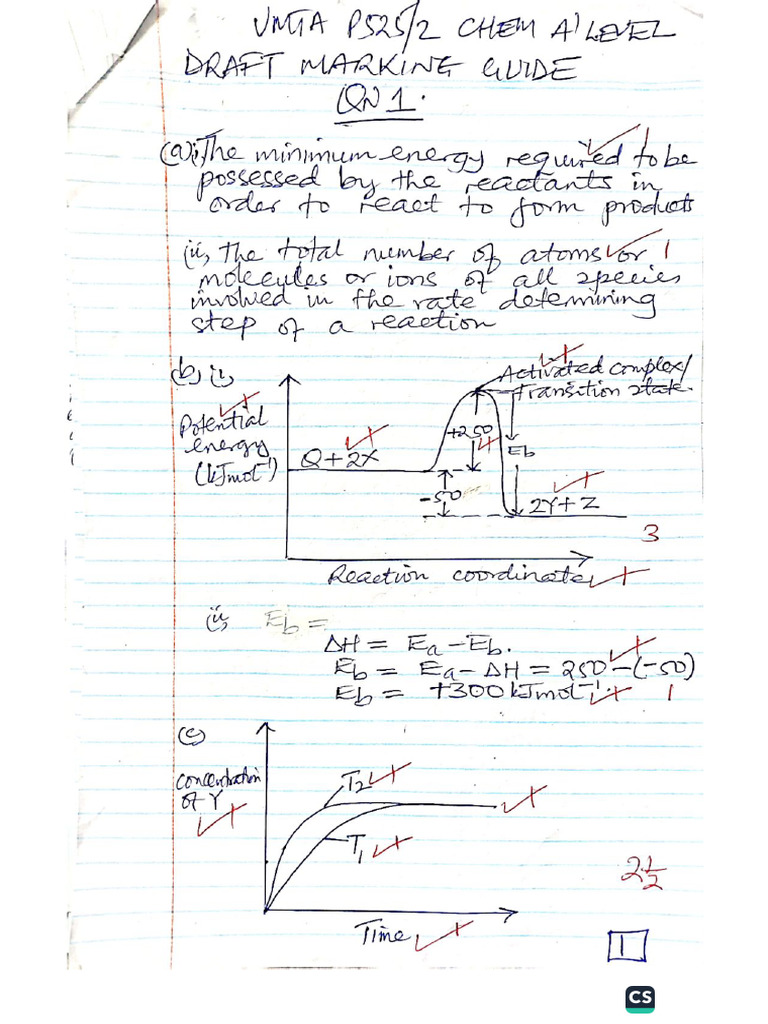 UMTA P525/2 CHEM A' LEVEL
DRAFT MARKING GUIDE
QN 1.
(a)i, The minimum energy required to be 1
possessed by the reactants in
order to react to form products
ii, The total number of atoms or 1
molecules or ions of all species
involved in the rate determining
step of a reaction
(b) i,
Activated complex/
Transition state.
Potential
energy
(kJmol-1)
Q + 2X
+250
Eb
-50
2Y + Z
3
Reaction coordinate
ii, Eb =
ΔH = Ea - Eb.
Eb = Ea - ΔH = 250 - (-50)
Eb = +300 kJmol-1. 1
(c)
Concentration
of Y
T2
T1
2½
Time
1
CS